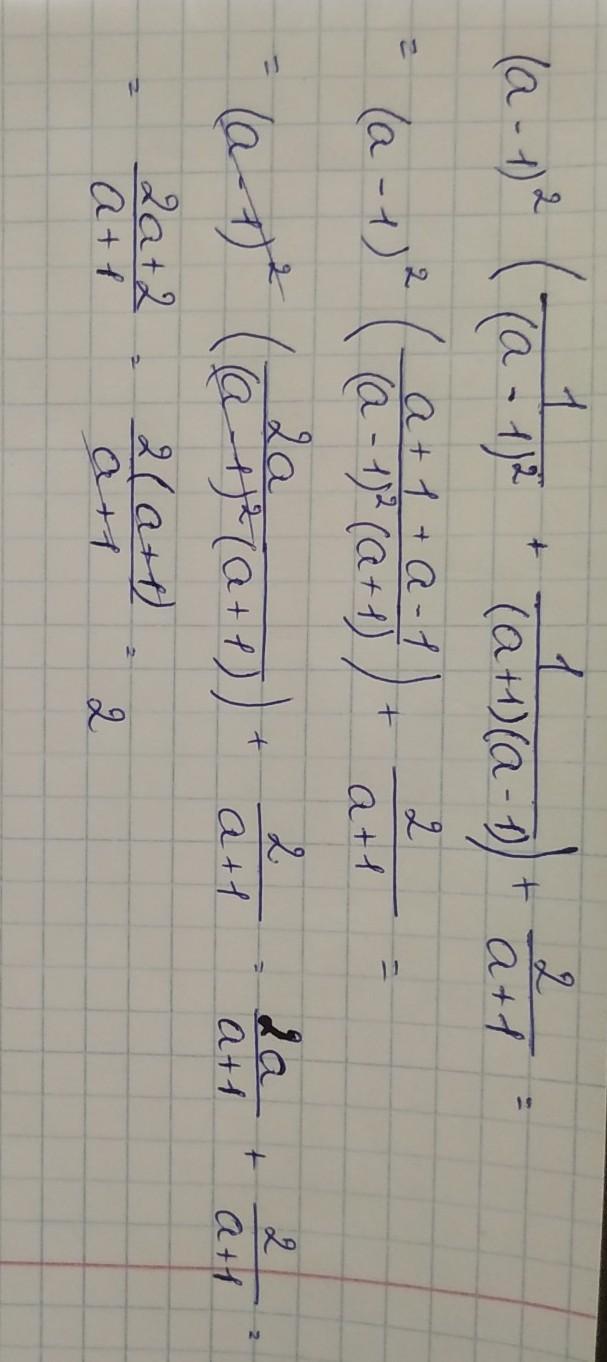 (a - 1)² (1/(a - 1)² + 1/((a+1)(a-1))) + 2/(a+1) =
= (a - 1)² ((a + 1 + a - 1)/((a - 1)² (a+1))) + 2/(a+1) =
= (a - 1)² (2a/((a - 1)² (a+1))) + 2/(a+1) = 2a/(a+1) + 2/(a+1) =
= (2a+2)/(a+1) = 2(a+1)/(a+1) = 2